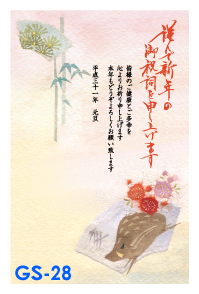 謹んで新年の
御祝詞を申し上げます
皆様のご健康とご多幸を
心よりお祈り申し上げます
本年もどうぞよろしくお願い致します
平成三十一年 元旦
GS-28